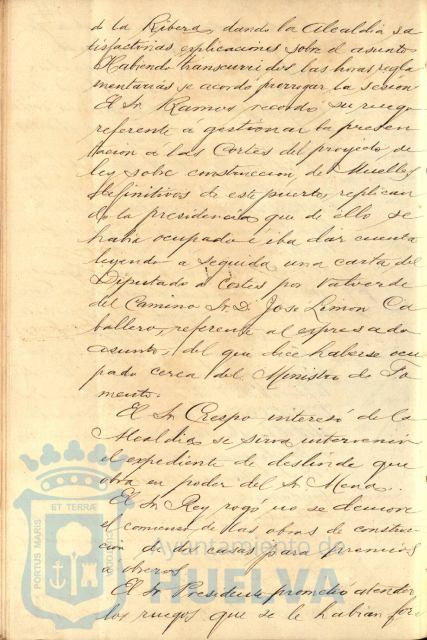 de la Ribera, dando la Alcaldía sa
tisfactorias explicaciones sobre el asunto.
Habiendo transcurrido las horas regla
mentarias se acordó prorrogar la sesión
El Sr. Ramos recordó su ruego
referente á gestionar la presen
tación á las Cortes del proyecto de
ley sobre construcción de Muelles
definitivos de este puerto, replican
do la presidencia que de ello se
había ocupado é iba dar cuenta
leyendo a seguida una carta del
Diputado á Cortes por Valverde
del Camino Sr. D. Jose Limon Ca
ballero, referente al expresado
asunto, del que dice haberse ocu
pado cerca del Ministro de Fo
mento.
El Sr. Crespo interesó de la
Alcaldía se sirva intervenir
el expediente de deslinde que
obra en poder del Sr. Mena.
El Sr. Rey rogó no se demore
el comienzo de las obras de construc
ción de dos casas para premios
a obreros.
El Sr. Presidente prometió atender
los ruegos que se le habían for
PORTUS MARIS ET TERRÆ CUSTODIA
Ayuntamiento de
HUELVA